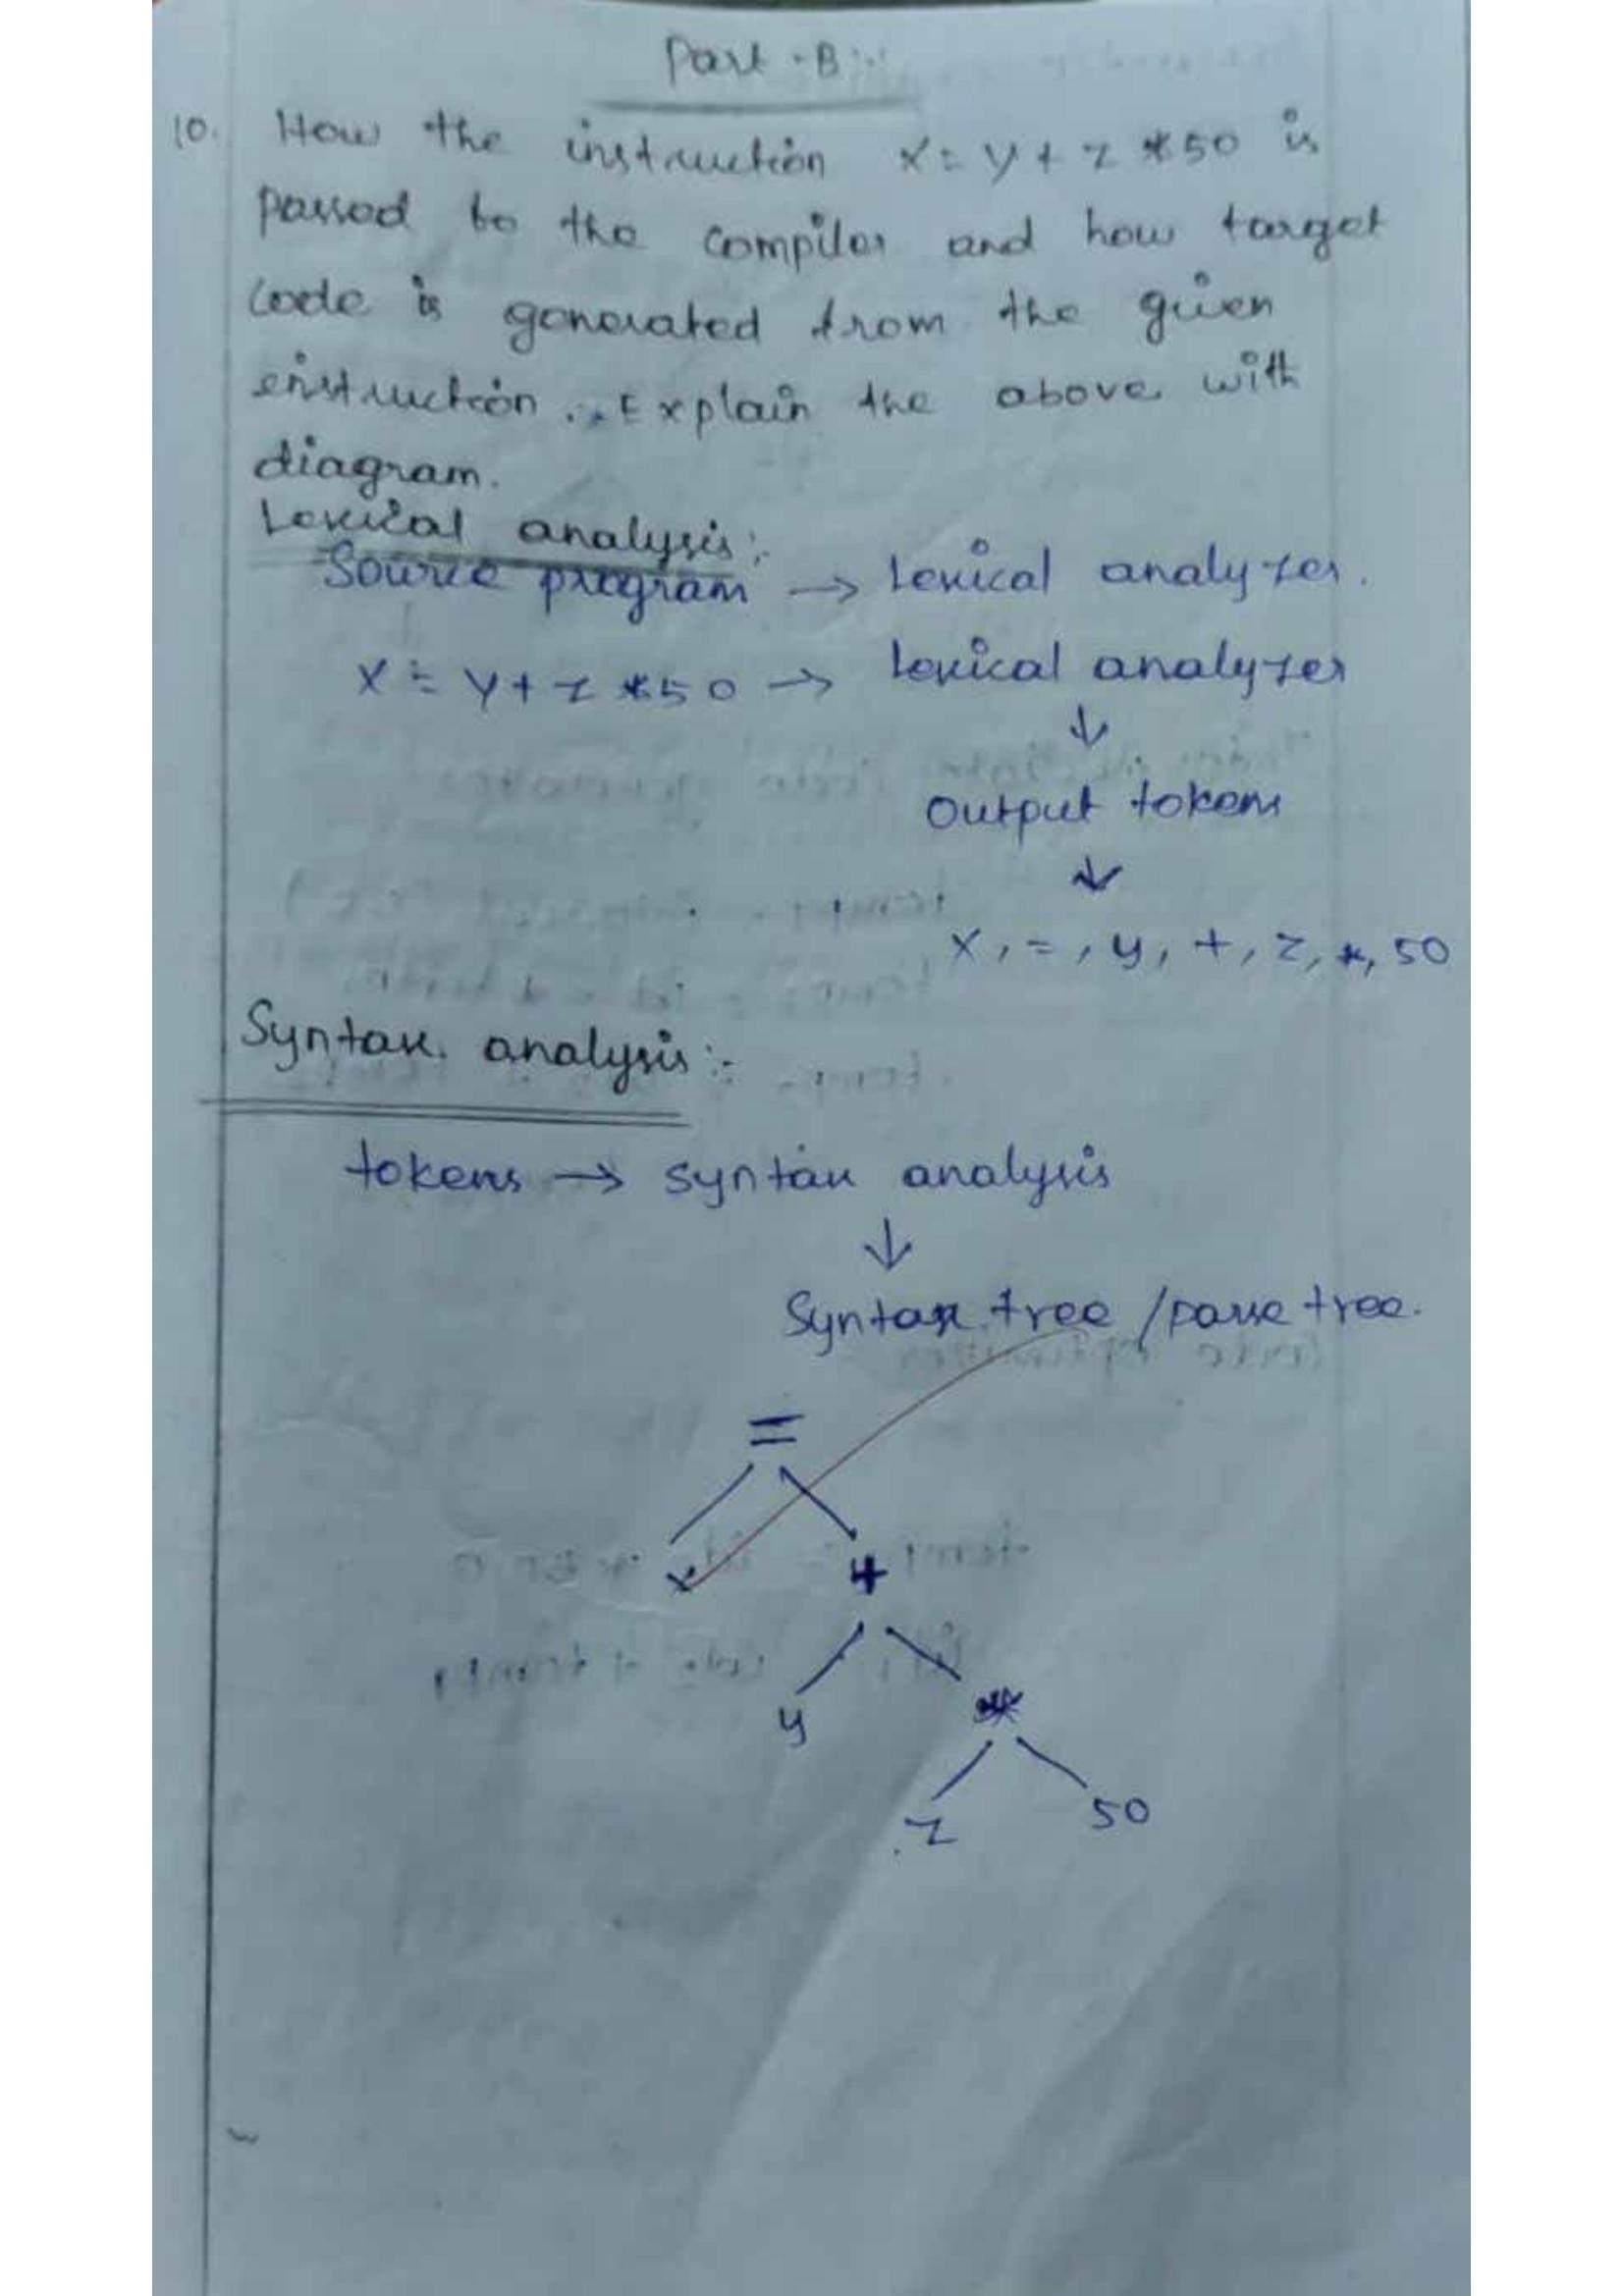 Part - B :-
10. How the instruction x = y + z * 50 is
passed to the compiler and how target
code is generated from the given
instruction. Explain the above with
diagram.
Lexical analysis :-
Source program → Lexical analyzer.
x = y + z * 50 → Lexical analyzer
↓
Output tokens
↓
x, =, y, +, z, *, 50
Syntax analysis :-
tokens → syntax analysis
↓
Syntax tree / parse tree.
=
x +
y *
z 50